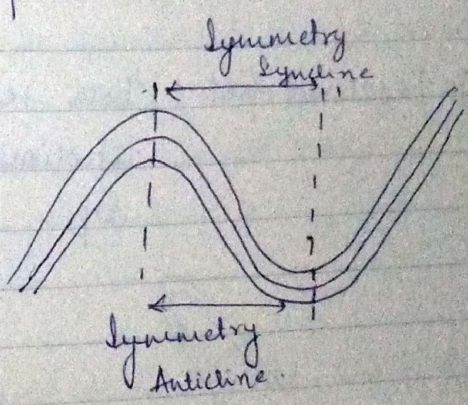 Symmetry
Syncline
Symmetry
Anticline.